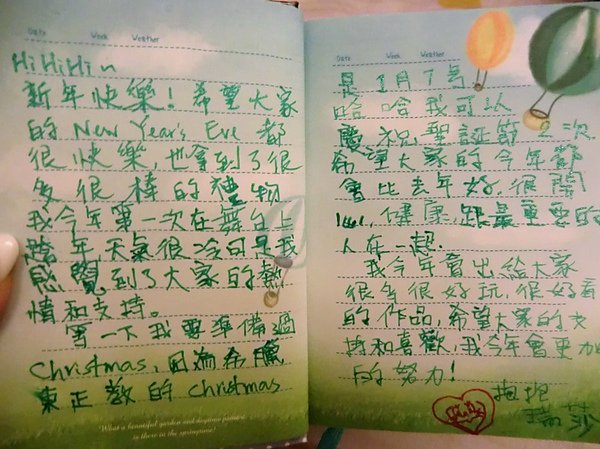 Date Week Weather
HiHiHi~
新年快樂！希望大家
的 New Year's Eve 都
很快樂，也拿到了很
多很棒的禮物
我今年第一次在舞台上
跨年，天氣很冷可是我
感覺到了大家的熱
情和支持。
等一下我要準備過
Christmas，因為希臘
東正教的 Christmas
"What a beautiful garden and daytime picture
is there in the springtime!
Date Week Weather
是 1月7号
哈哈我可以
慶祝聖誕節2次
希望大家的今年節
會比去年好，很開
心，健康，跟最重要的
人在一起。
我今年會出給大家
很多很好玩，很好看
的作品，希望大家的支
持和喜歡，我今年會更加
的努力！
抱抱
瑞莎